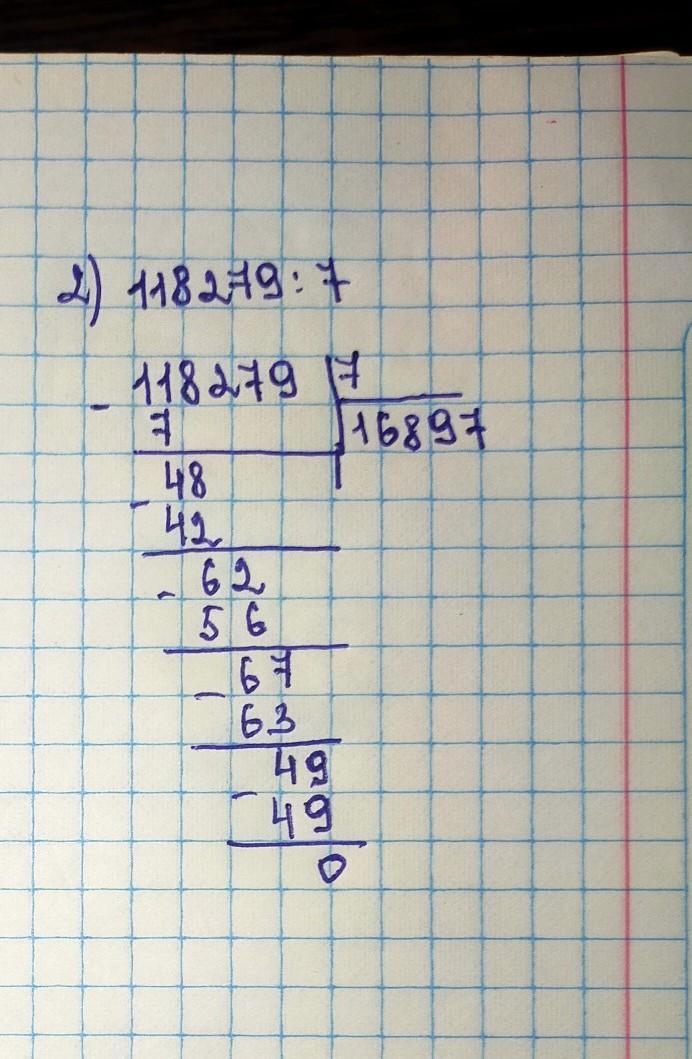 2) 118279 : 7
118279 7
- 7 16897
48
- 42
- 62
56
- 67
63
49
- 49
0